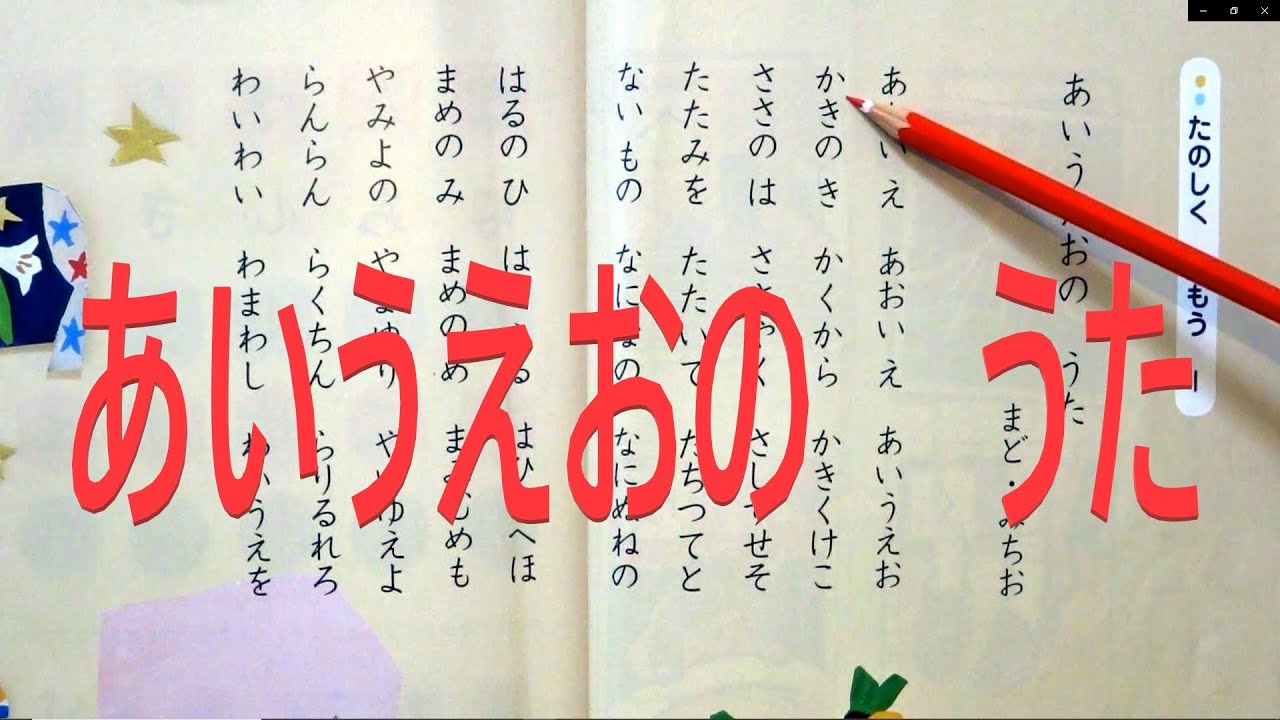 あいうえおの　うた
たのしく もう 一
あいう おの うた
まど・みちお
あ い え あおい え あいうえお
かきの き かくから かきくけこ
ささの は ささやく さしすせそ
たたみを たたいて たちつてと
ないもの なになの なにぬねの
はるの ひ は る はひ へほ
まめの み まめの め まみむめも
やみよの やまゆり やいゆえよ
らんらん らくちん らりるれろ
わいわい わまわし わいうえを